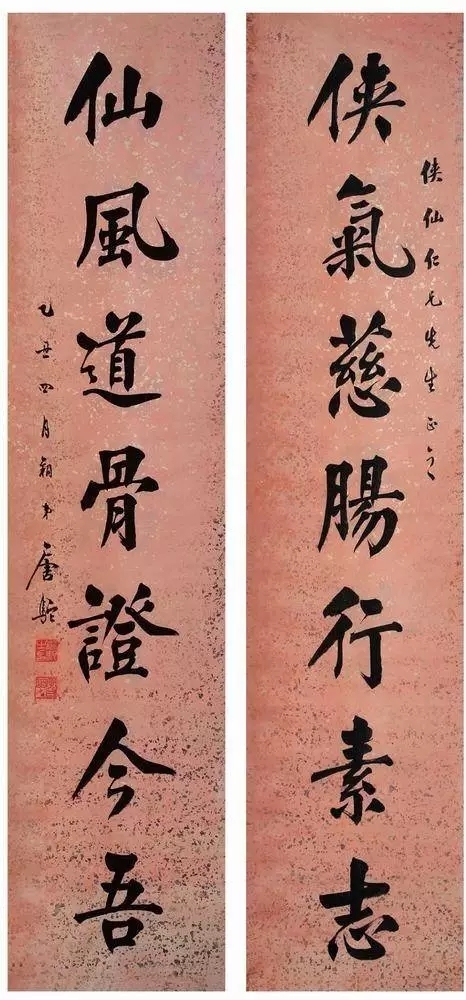 俠仙仁兄先生正之
俠氣慈腸行素志
仙風道骨證今吾
乙丑四月朔弟唐駝